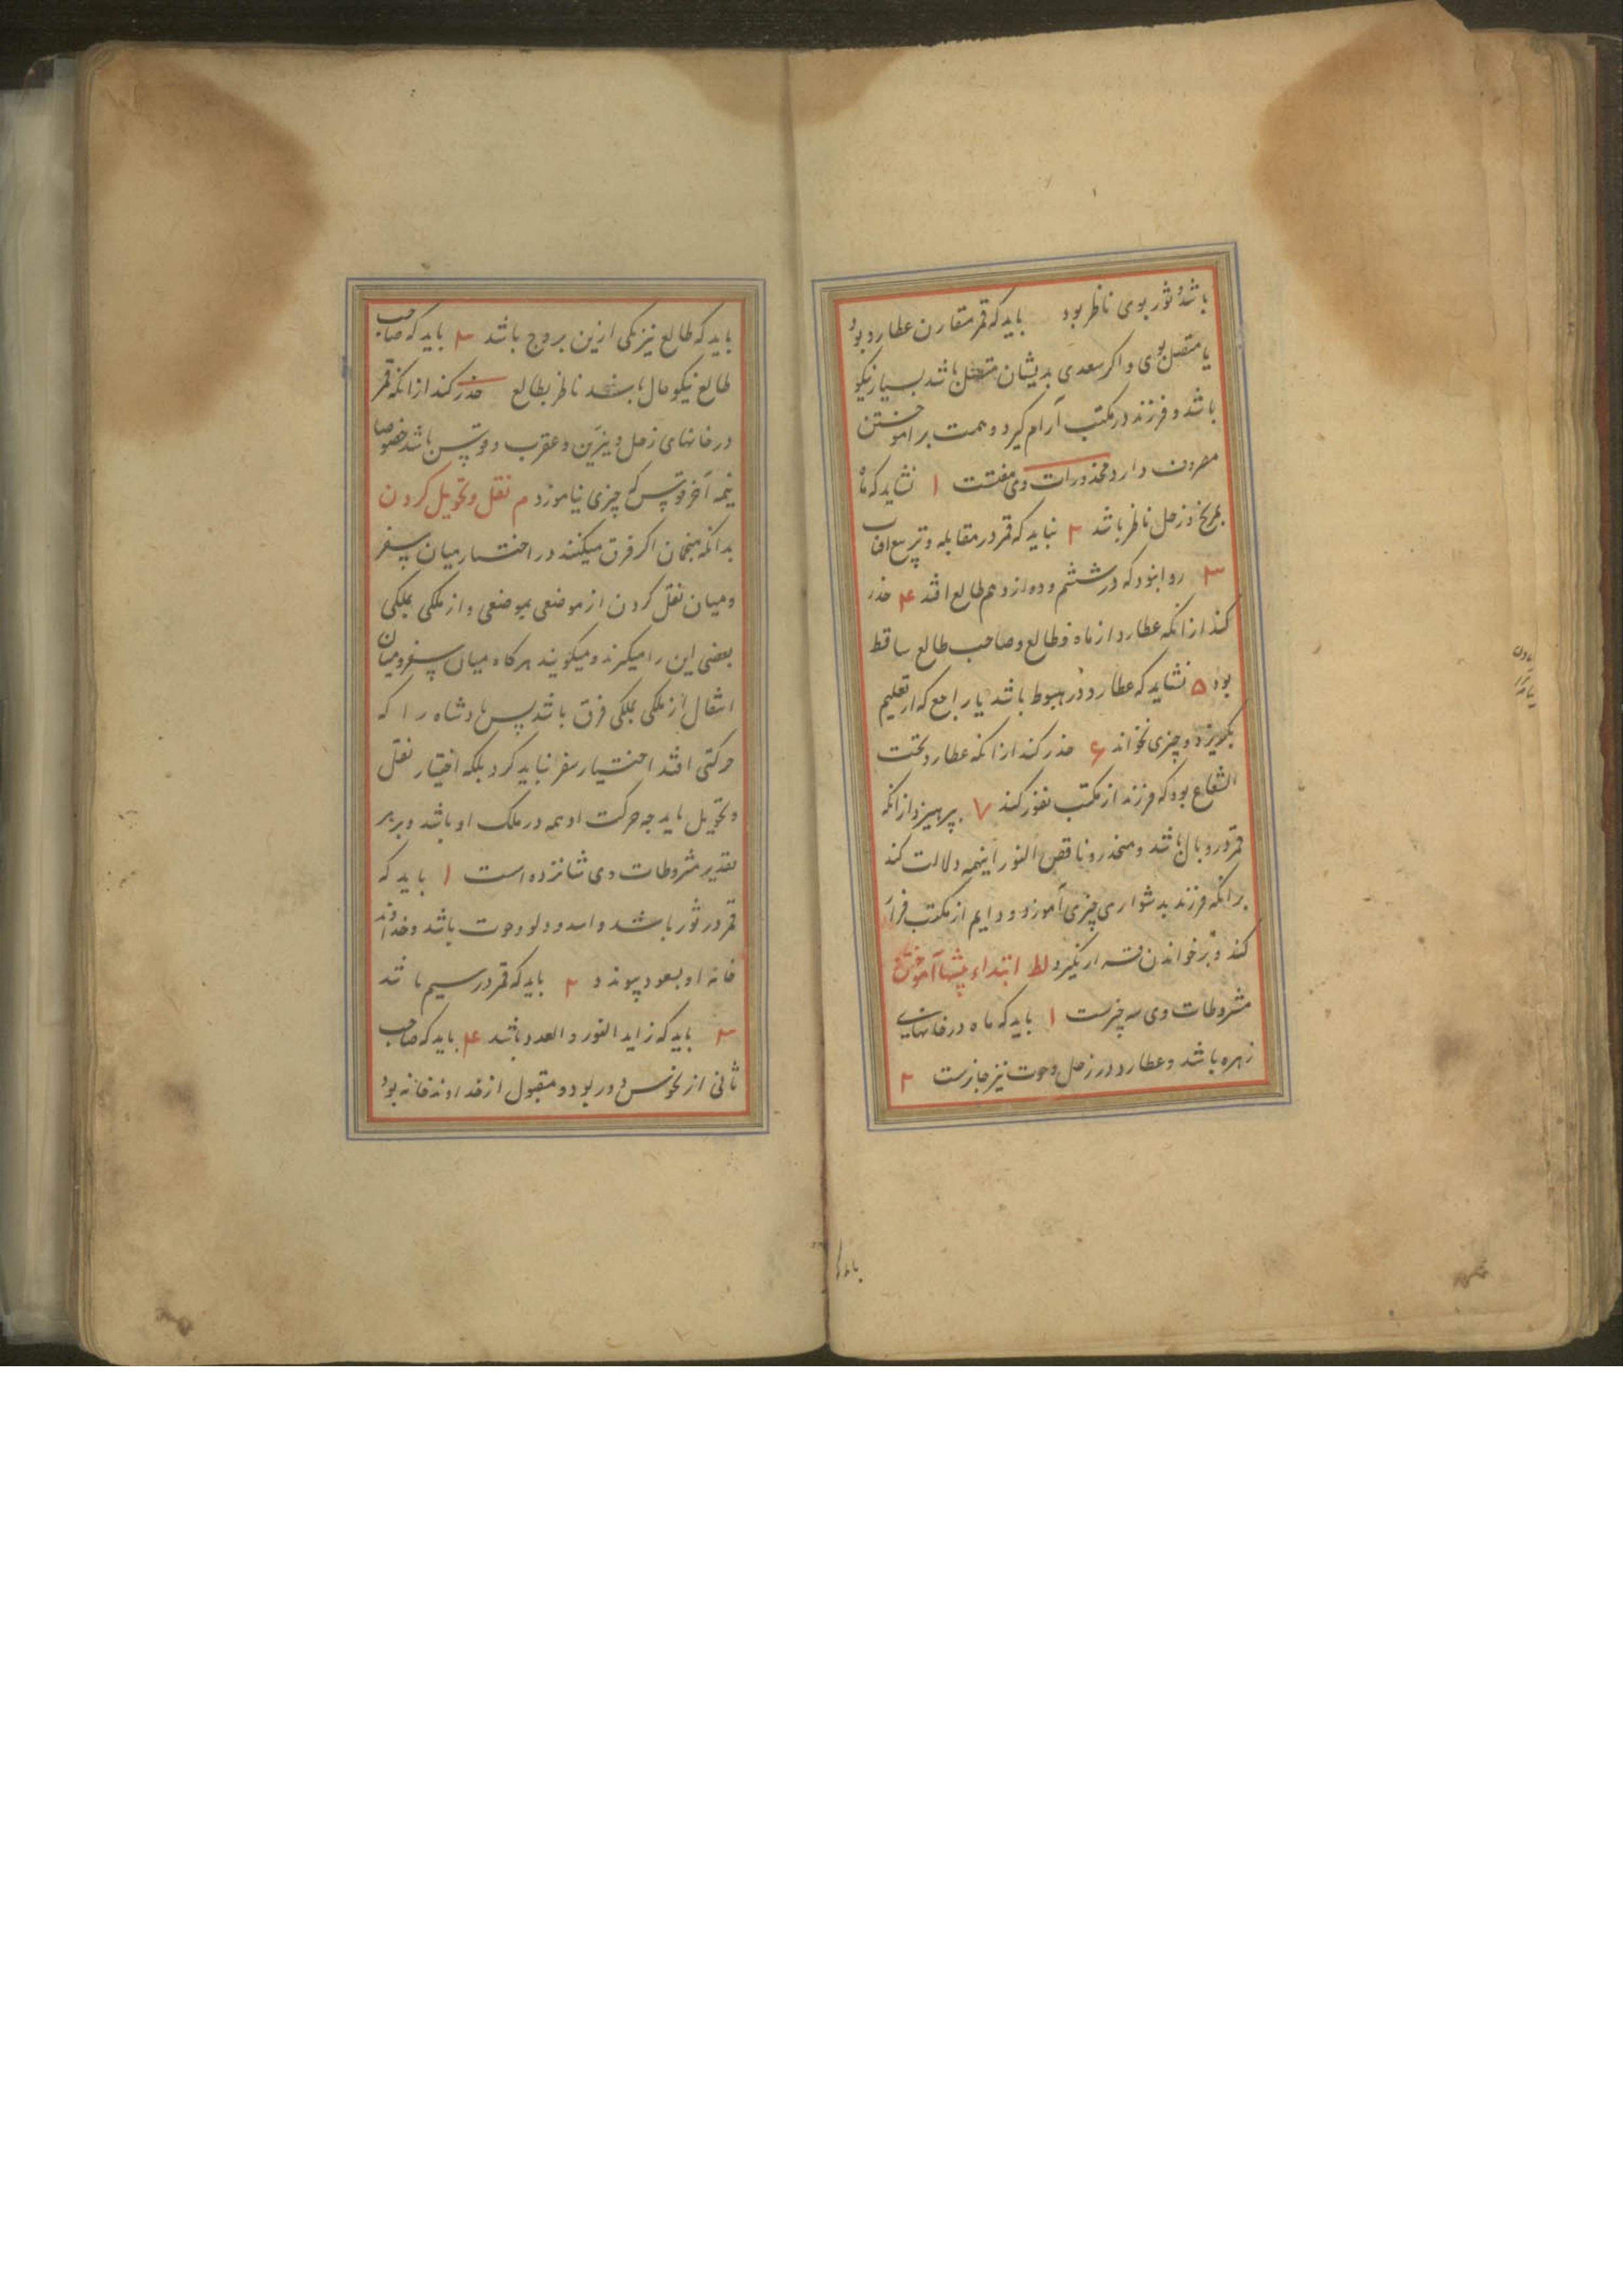 باشد و نور بوی ناظر بود باید که قمر مقارن عطارد بود
یا متصل بوی و اکر سعدی بدیشان متصل باشد بسیار نیکو
باشد و فرزند در مکتب آرام کیرد و همت بر اموختن
مصروف دارد محذورات وی هفتست ۱ نشاید که ماه
بمریخ و زحل ناظر باشد ۲ نباید که قمر در مقابله و تربیع افتاب
۳ روا نبود که در ششم و دوازدهم طالع افتد ۴ حذر
کند از انکه عطارد از ماه و طالع و صاحب طالع ساقط
بود ۵ نشاید که عطارد در هبوط باشد یا راجع که از تعلیم
بکریزد و چیزی نخواند ۶ حذر کند از انکه عطارد تحت
الشعاع بود که فرزند از مکتب نفور کند ۷ بپرهیزد از انکه
قمر در وبال باشد و منحدر و ناقص النور اینهمه دلالت کند
بر انکه فرزند بدشواری چیزی آموزد و دایم از مکتب فرار
کند و بر خواندن قرار نکیرد لط ابتداء پیشها آموختن
مشروطات وی سه چیزست ۱ باید که ماه در خانهای
زهره باشد و عطارد در زحل و حوت نیز جایزست ۲
باید که
باید که طالع نیز یکی ازین بروج باشد ۳ باید که صاحب
طالع نیکو حال باشد ناظر بطالع حذر کند از انکه قمر
در خانهای زحل و نیرین و عقرب و قوس باشد خصوصا
نیمه آخر قوس که چیزی نیاموزد م نقل و تحویل کردن
بدانکه منجمان اکر فرق میکنند در اختیار میان سفر
و میان نقل کردن از موضعی بموضعی و از ملکی بملکی
بعضی این را میکرند و میکویند هرکاه میان سفر و میان
انتقال از ملکی بملکی فرق باشد پس پادشاه را که
حرکتی افتد اختیار سفر نباید کرد بلکه اختیار نقل
و تحویل باید چه حرکت او همه در ملک او باشد و بر هر
تقدیر مشروطات وی شانزده است ۱ باید که
قمر در ثور باشد و اسد و دلو و حوت باشد و خداوند
خانه او بسعود پیوندد ۲ باید که قمر در سیم باشد
۳ باید که زاید النور و العدد باشد ۴ باید که صاحب
ثانی از نحوس دور بود و مقبول از خداوند خانه بود